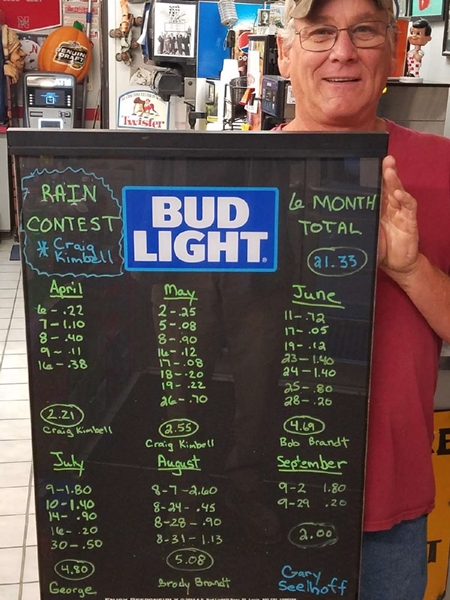 GENUINE
DRAFT
Twister
RAIN
CONTEST
* Craig
Kimbell
BUD
LIGHT
6 MONTH
TOTAL
21.33
April
6 - .22
7 - 1.10
8 - .40
9 - .11
16 - .38
2.21
Craig Kimbell
May
2 - .25
5 - .08
8 - .90
16 - .12
17 - .08
18 - .20
19 - .22
26 - .70
2.55
Craig Kimbell
June
11 - .72
17 - .05
19 - .12
23 - 1.40
24 - 1.40
25 - .80
28 - .20
4.69
Bob Brandt
July
9 - 1.80
10 - 1.40
14 - .90
16 - .20
30 - .50
4.80
George
August
8-7 - 2.60
8-24 - .45
8-28 - .90
8-31 - 1.13
5.08
Brody Brandt
September
9-2 1.80
9-29 .20
2.00
Gary
Seelhoff